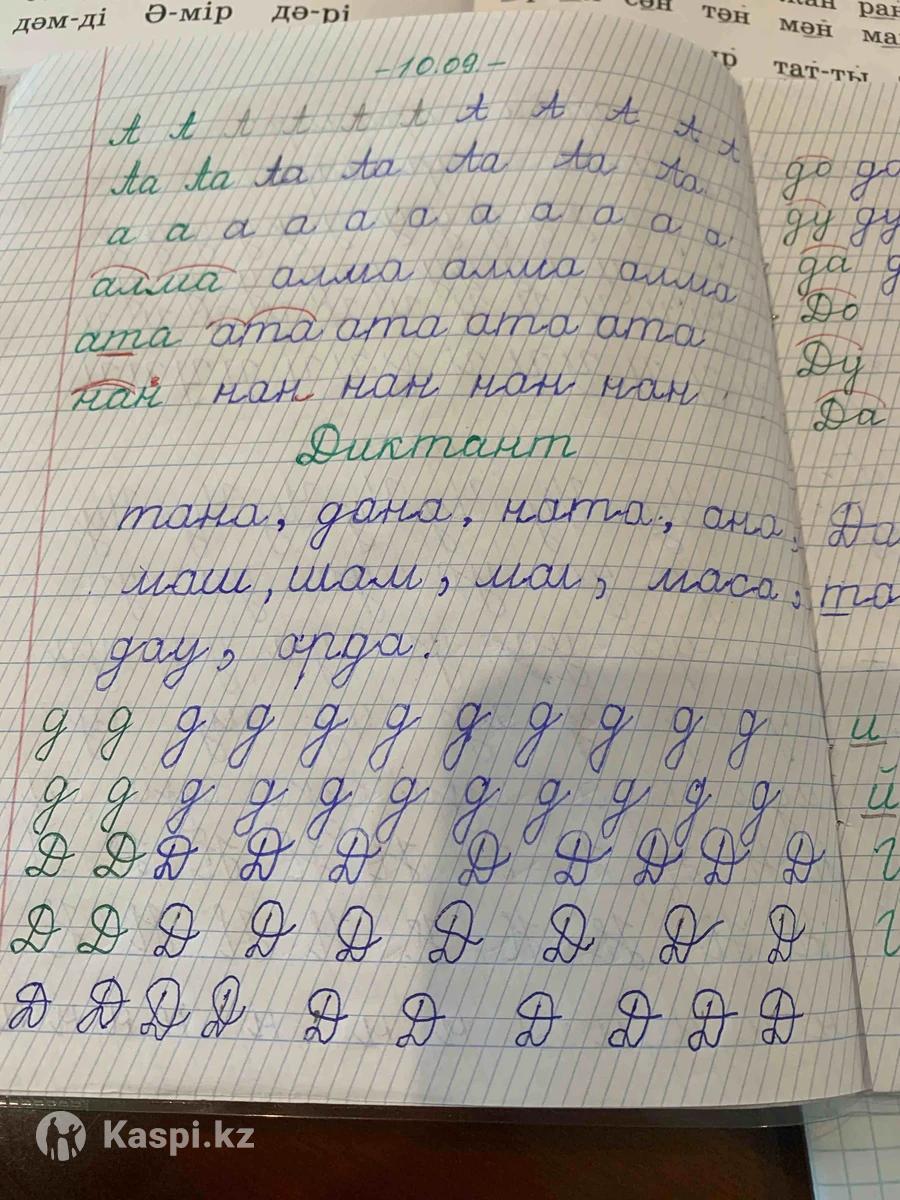 дәм-ді Ә-мір дә-рі
сөн төн
мөн
тат-ты
-10.09.-
А А А А А А А А А А А
Аа Аа Аа Аа Аа Аа Аа
а а а а а а а а а а а
алма алма алма алма
ата ата ата ата ата
нан нан нан нан нан
Диктант
тана, дана, ната, ана,
маш, шам, мал, маса,
дау, арда.
д д д д д д д д д д д
д д д д д д д д д д д
Д Д Д Д Д Д Д Д Д Д
Д Д Д Д Д Д Д Д Д
Д Д Д Д Д Д Д Д Д Д
до до
ду ду
да
До
Ду
Да
Да
та
и
й
Kaspi.kz